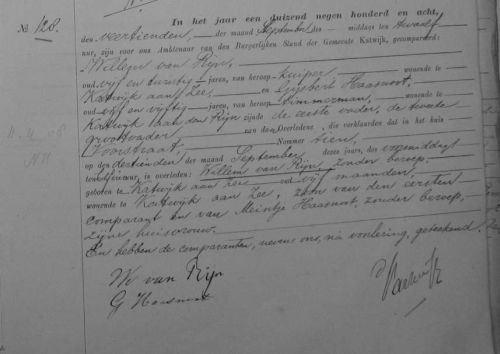 No 128.
In het jaar een duizend negen honderd en acht,
den veertienden der maand September des middags ten twaalf
ure, zijn voor ons Ambtenaar van den Burgerlijken Stand der Gemeente Katwijk, gecompareerd:
Willem van Rijn,
oud vijf en twintig jaren, van beroep kuiper wonende te
Katwijk aan Zee, en Gijsbert Haasnoot,
oud en vijftig jaren, van beroep timmerman, wonende te
Katwijk aan den Rijn zijnde de eerste vader, de tweede
grootvader van den Overledene, die verklaarden dat in het huis
Voorstraat, Nommer tien,
op den dertienden der maand September dezes jaars, des voormiddags
ten ure, is overleden: Willem van Rijn, zonder beroep,
geboren te Katwijk aan Zee oud vijf maanden,
wonende te Katwijk aan Zee, zoon van den eersten
comparant en van Meintje Haasnoot, zonder beroep,
zijne huisvrouw.
En hebben de comparanten, nevens ons, na voorlezing, geteekend.
W van Rijn
G Haasnoot